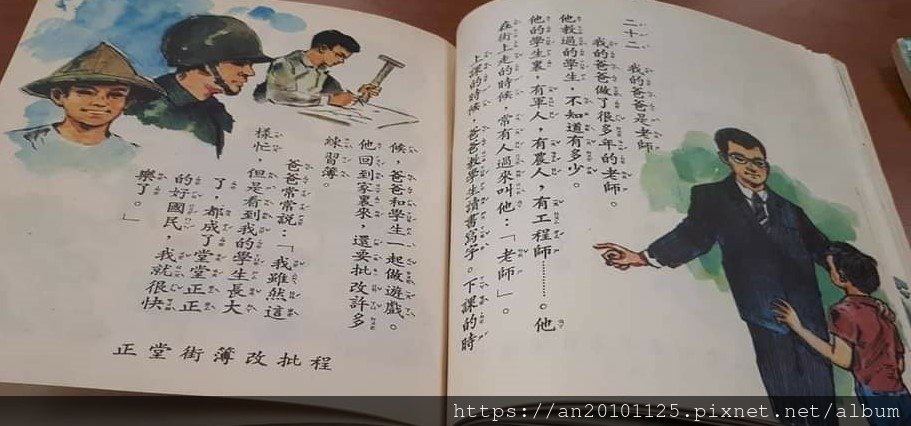 二十二
我的爸爸是老師
我的爸爸做了很多年的老師。
他教過的學生，不知道有多少。
他的學生裏，有軍人，有農人，有工程師………。他
在街上走的時候，常有人過來叫他：「老師」。
上課的時候，爸爸教學生讀書寫字。下課的時
候，爸爸和學生一起做遊戲。
他回到家裏來，還要批改許多
練習簿。
爸爸常常說：「我雖然這
樣忙，但是看到我的學生長大
了，都成了堂堂正正
的好國民，我就很快
樂了。」
程批改簿街堂正
https://an20101125.pixnet.net/album